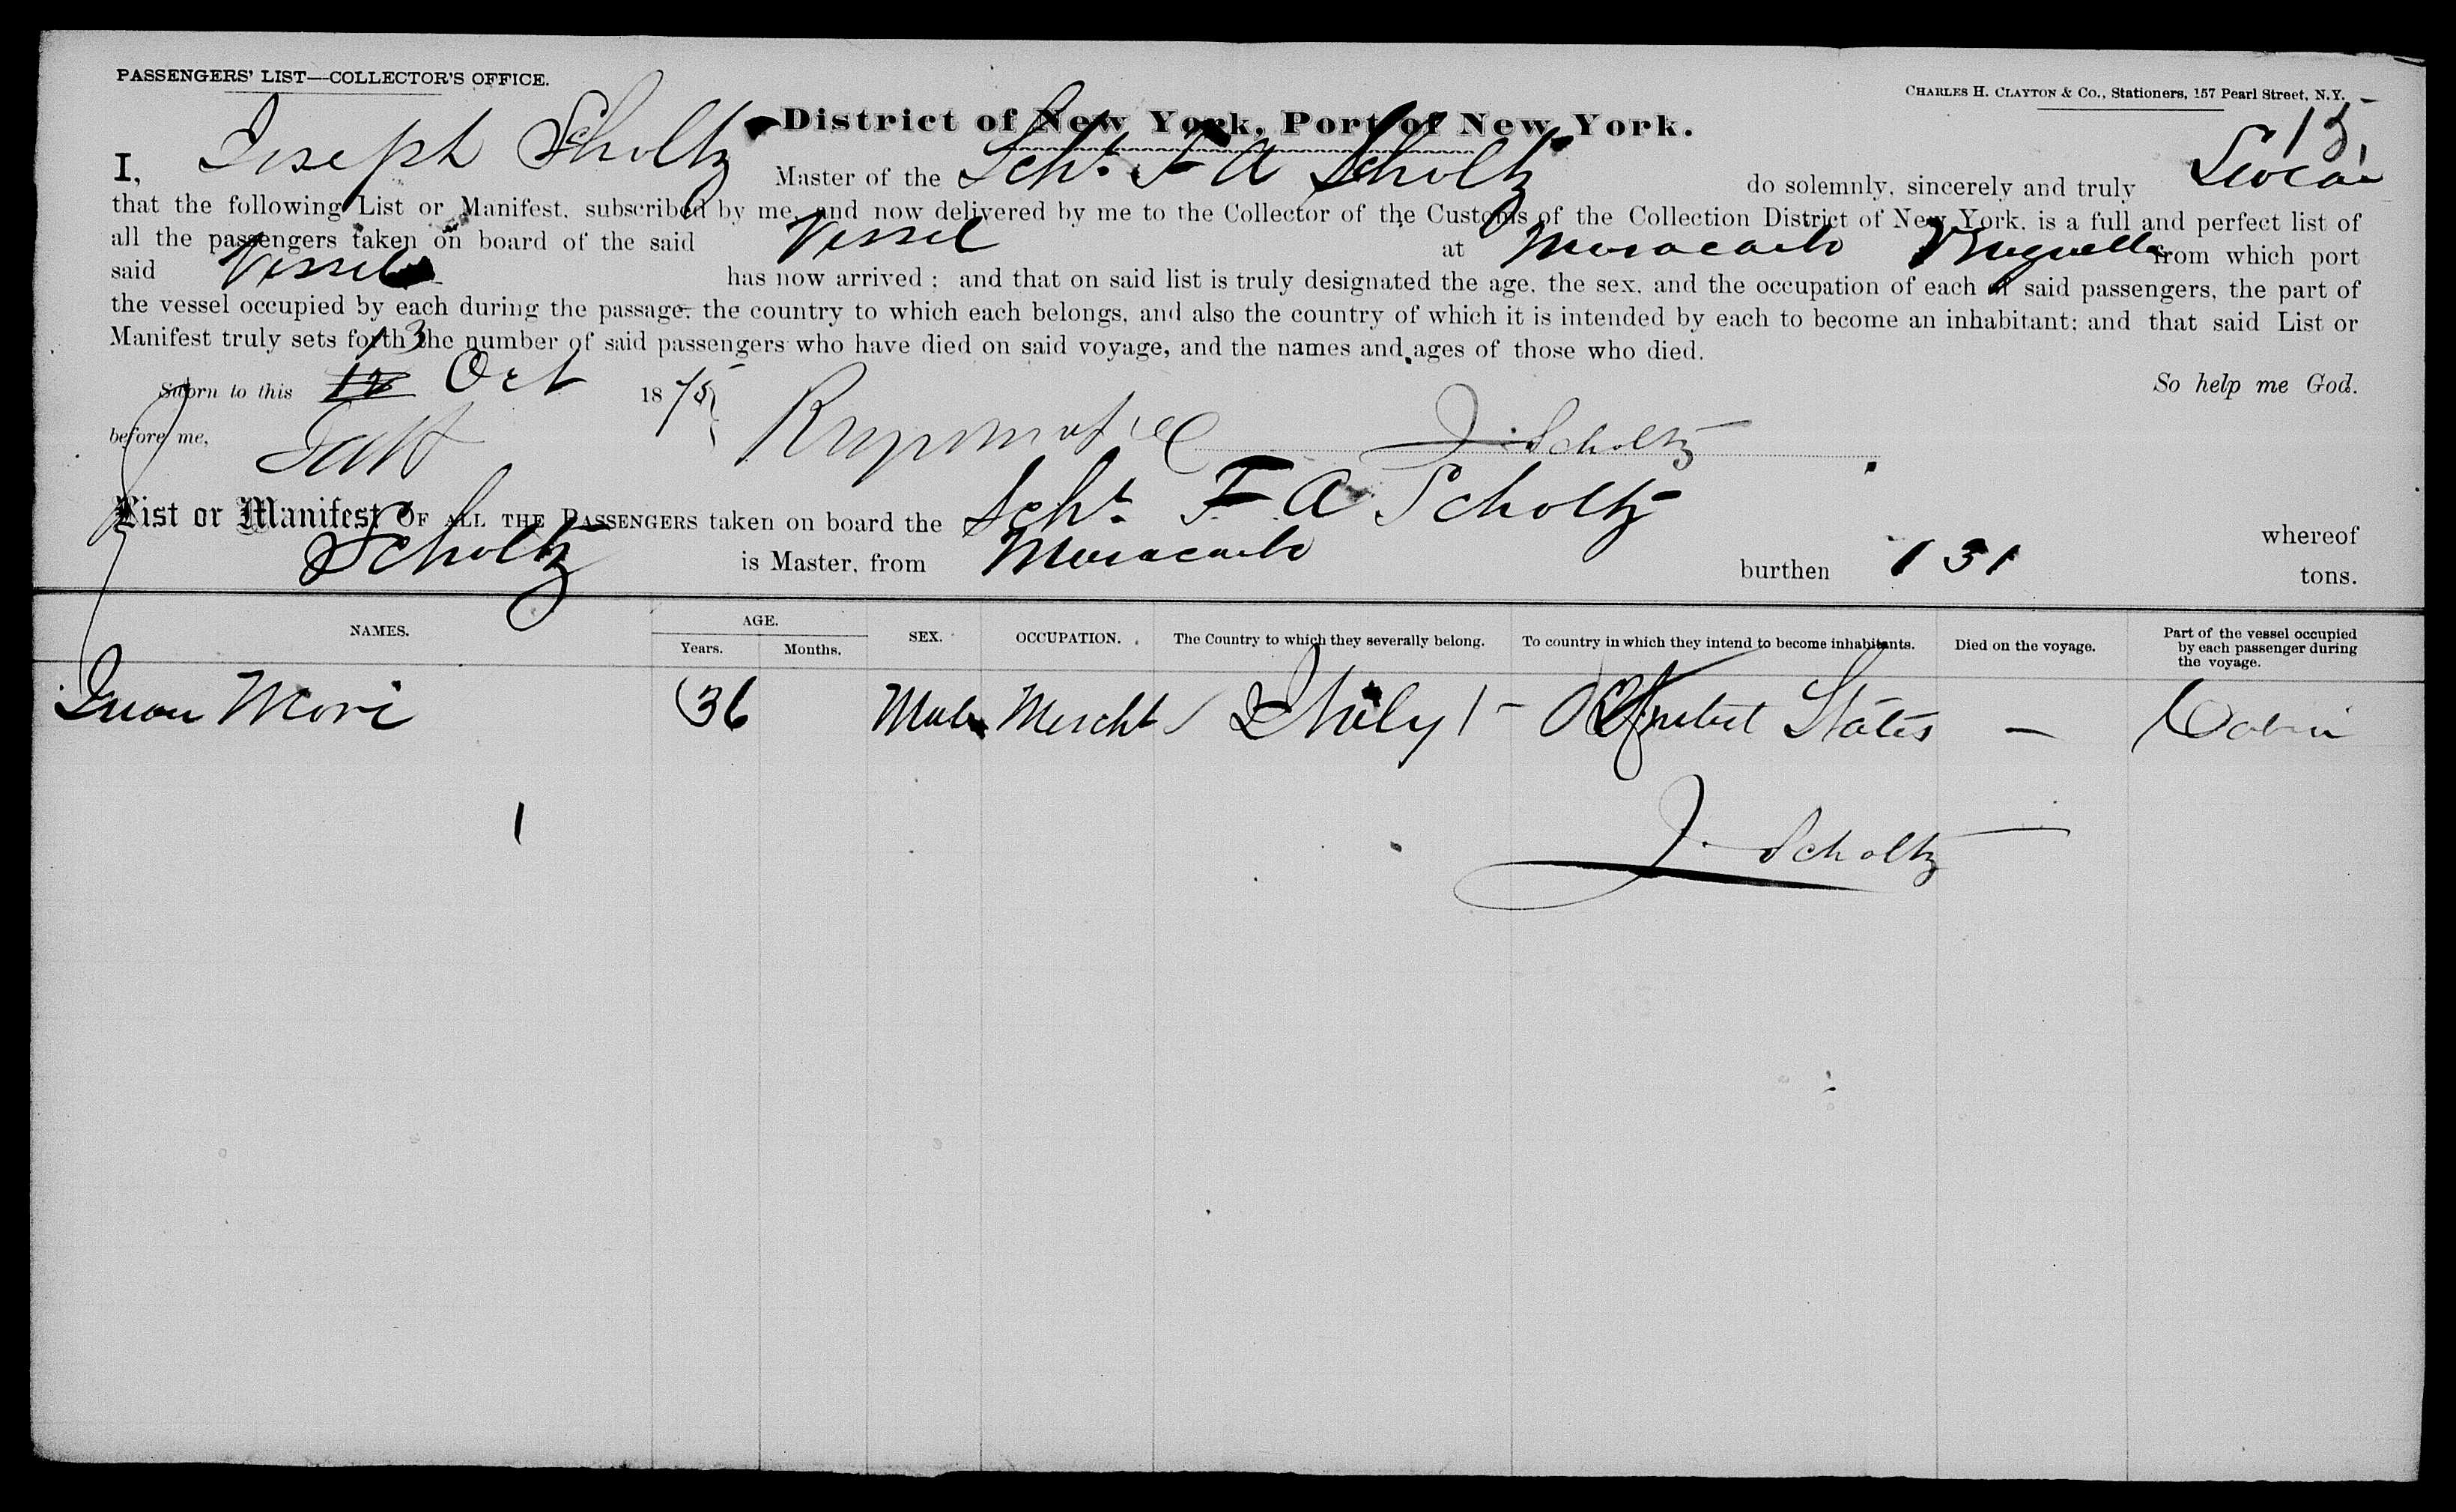 PASSENGERS' LIST—COLLECTOR'S OFFICE.
CHARLES H. CLAYTON & CO., Stationers, 157 Pearl Street, N.Y.
District of New York, Port of New York.
I, Joseph Scholtz Master of the Schr. F A Scholtz do solemnly, sincerely and truly Swear
that the following List or Manifest, subscribed by me, and now delivered by me to the Collector of the Customs of the Collection District of New York, is a full and perfect list of
all the passengers taken on board of the said Vessel at Maracaibo from which port
said Vessel has now arrived; and that on said list is truly designated the age, the sex, and the occupation of each of said passengers, the part of
the vessel occupied by each during the passage, the country to which each belongs, and also the country of which it is intended by each to become an inhabitant; and that said List or
Manifest truly sets forth the number of said passengers who have died on said voyage, and the names and ages of those who died.
13
Sworn to this 12 Oct 1875 So help me God.
before me, J Scholtz
List or Manifest OF ALL THE PASSENGERS taken on board the Schr. F A Scholtz whereof
Scholtz is Master, from Maracaibo burthen 131 tons.
NAMES. AGE. Years. Months. SEX. OCCUPATION. The Country to which they severally belong. To country in which they intend to become inhabitants. Died on the voyage. Part of the vessel occupied by each passenger during the voyage.
Juan Mori 36 Male Mercht United States — Cabin
1
J Scholtz